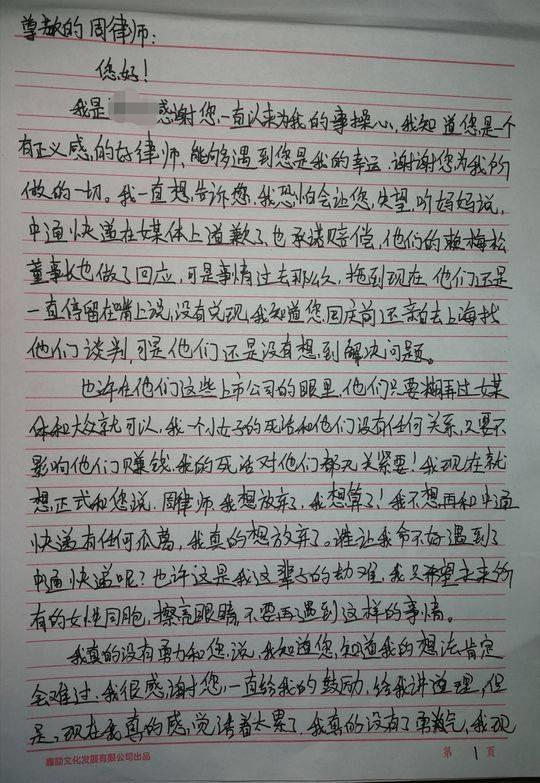 尊敬的周律师:
您好!
我是 感谢您,一直以来为我的事操心,我知道您是一个
有正义感的好律师,能够遇到您是我的幸运,谢谢您为我所
做的一切。我一直想告诉您,我恐怕会让您失望,听妈妈说,
中通快递在媒体上道歉了,也承诺赔偿,他们的赖梅松
董事长也做了回应,可是事情过去那么久,拖到现在他们还是
一直停留在嘴上说,没有兑现,我知道您,回庆前还亲自去上海找
他们谈判,可是他们还是没有想到解决问题。
也许在他们这些上市公司的眼里,他们只要糊弄过媒
体和大众就可以,我一个小女子的死活和他们没有任何关系,只要不
影响他们赚钱,我的死活对他们都无关紧要!我现在就
想正式和您说,周律师,我想放弃了,我想算了!我不想再和中通
快递有任何瓜葛,我真的想放弃了。谁让我命不好遇到了
中通快递呢?也许这是我这辈子的劫难,我只希望未来所
有的女性同胞,擦亮眼睛,不要再遇到这样的事情。
我真的没有勇气和您说,我知道您,知道我的想法肯定
会难过,我很感谢您,一直给我的鼓励,给我讲道理,但
是,现在我真的感觉活着太累了,我真的没有了勇气,我现
鑫励文化发展有限公司出品 第 1 页